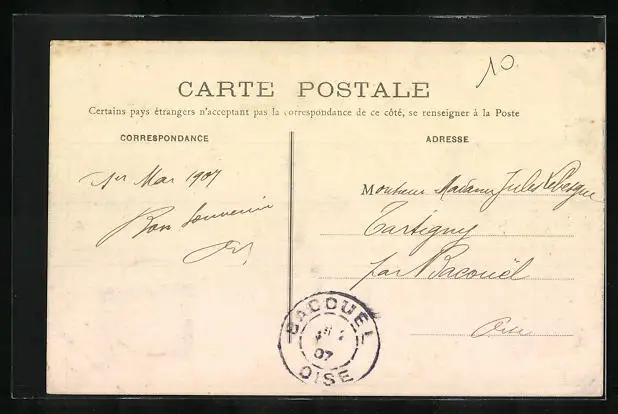 10
CARTE POSTALE
Certains pays étrangers n'acceptant pas la correspondance de ce côté, se renseigner à la Poste
CORRESPONDANCE
ADRESSE
1er Mai 1907
Bon Souvenir
Monsieur Madame Jules Lebesgue
Tartigny
par Bacouël
Oise
BACOUEL
07
OISE